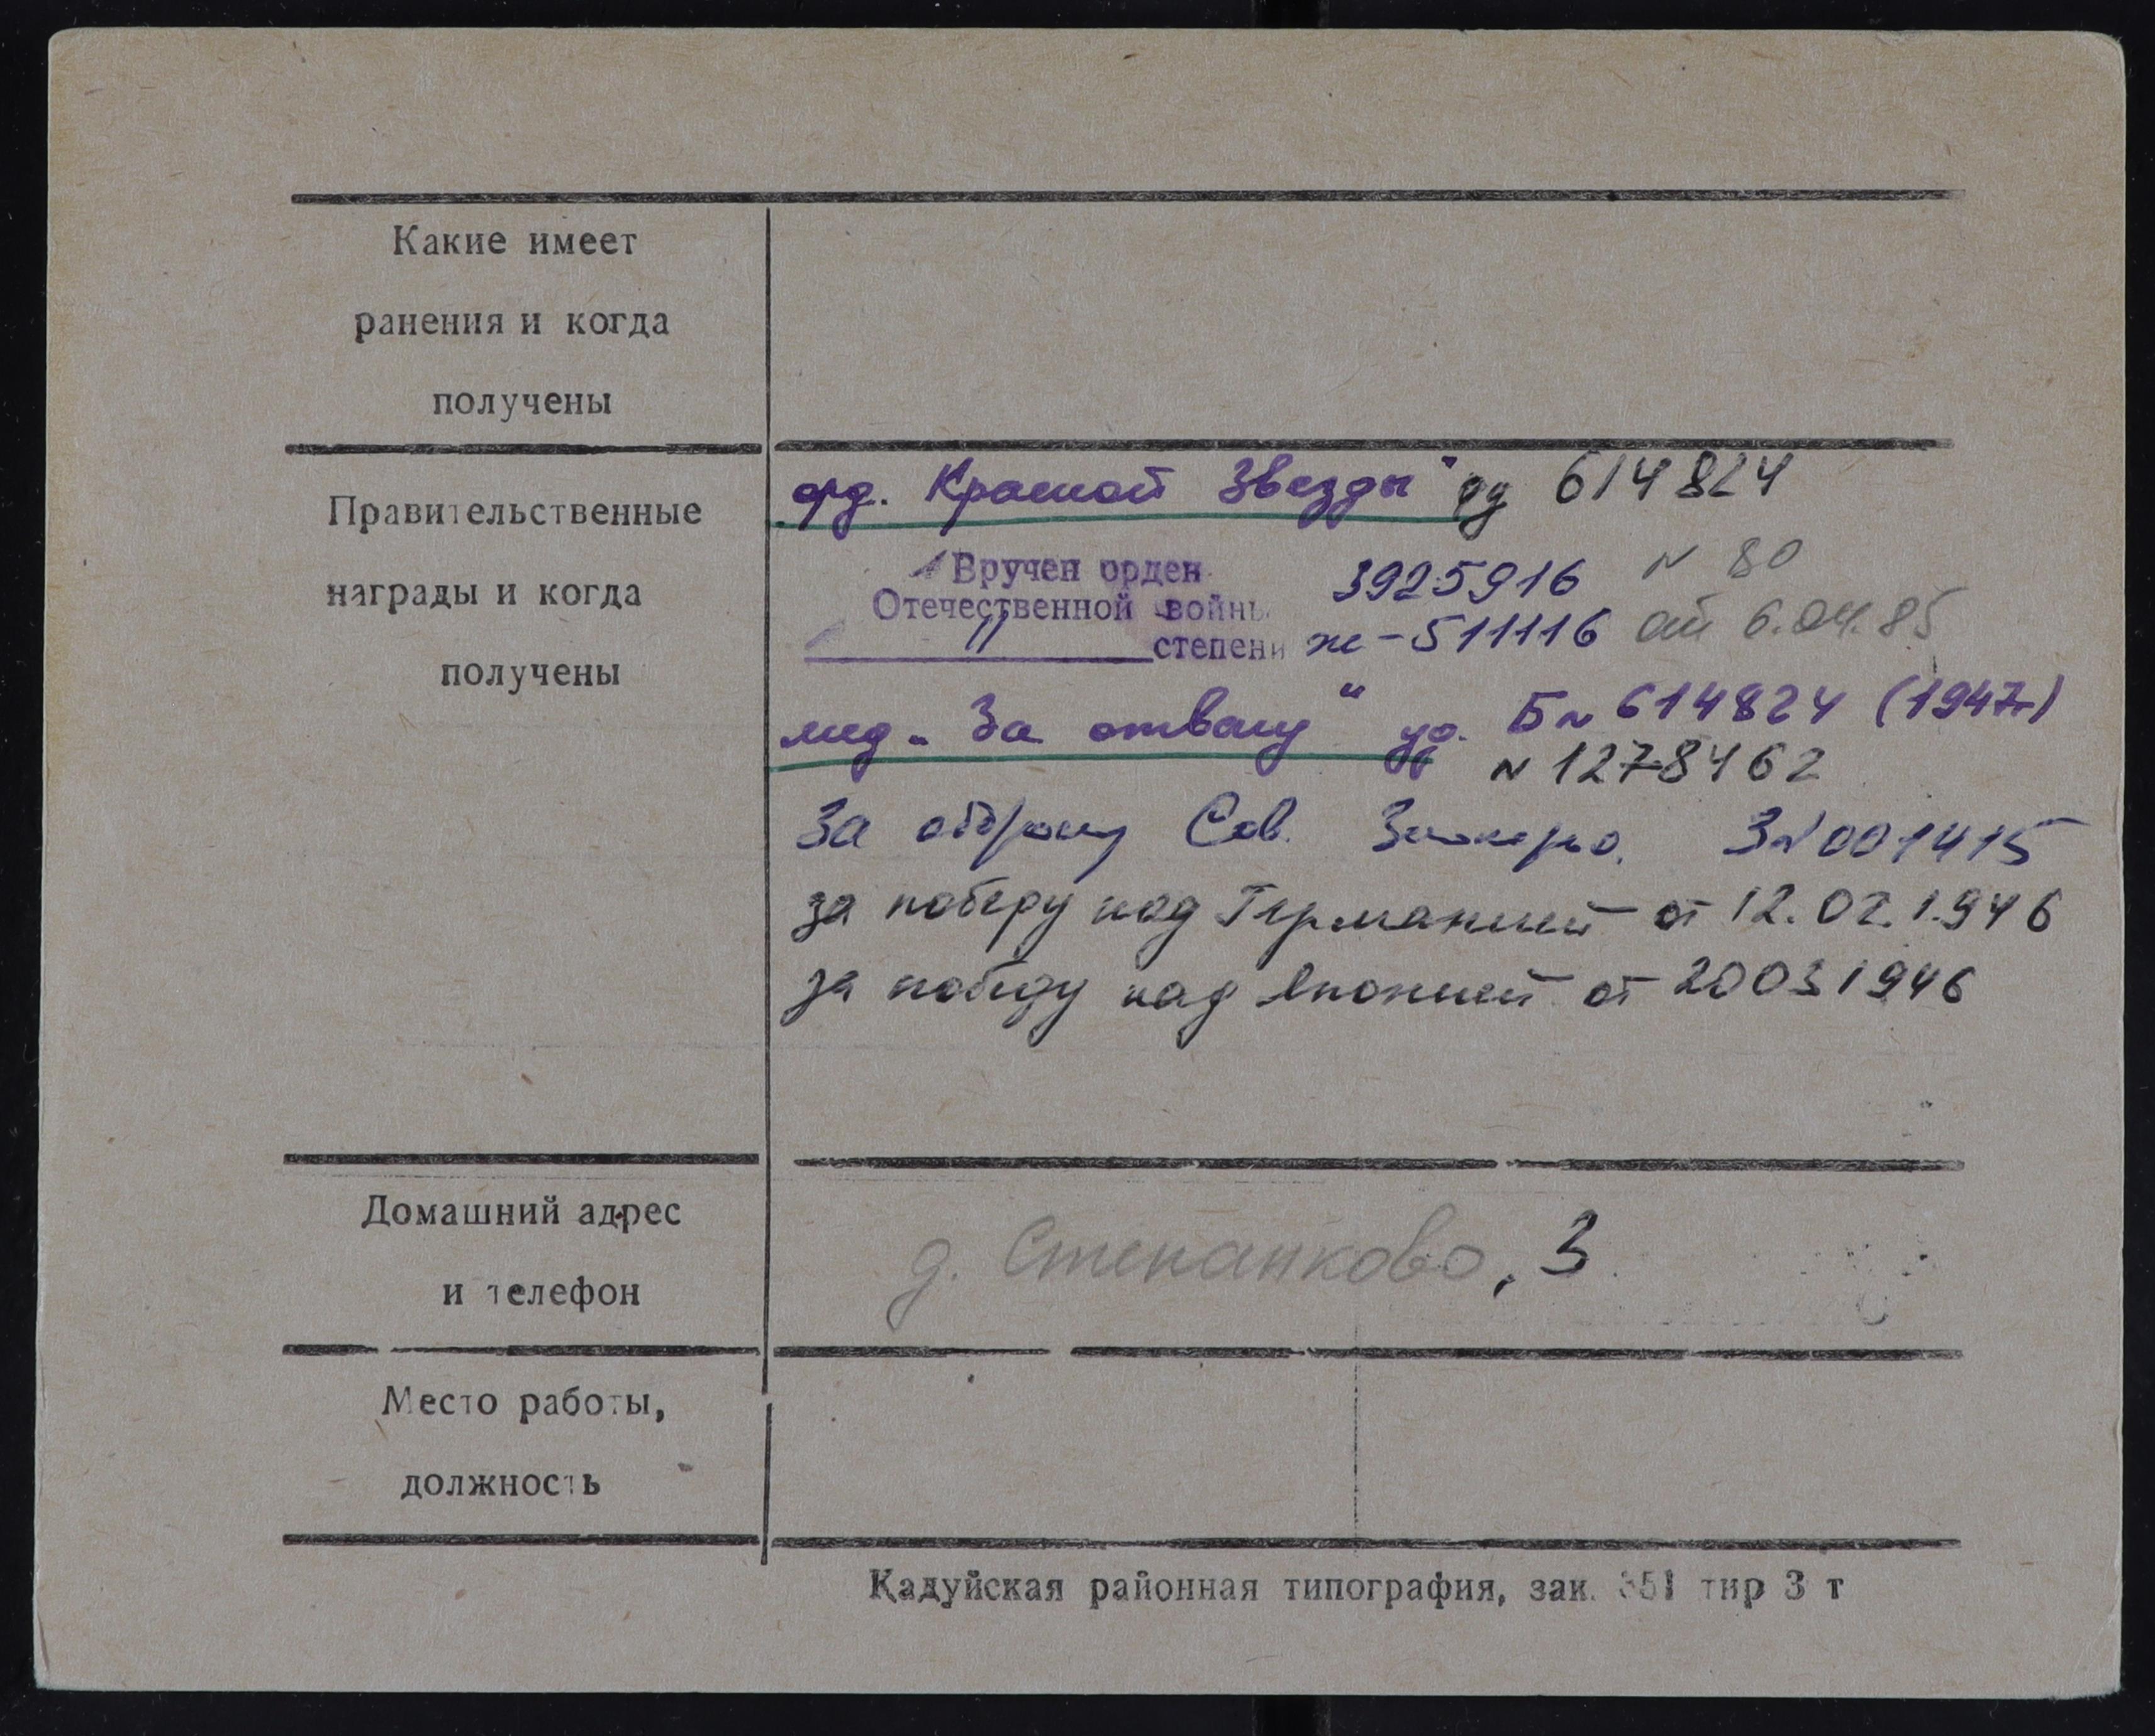 Какие имеет
ранения и когда
получены
Правительственные
награды и когда
получены
орд. Красной Звезды" уд 614824
Вручен орден 3925916 N 80
Отечественной войны
II степени ж-511116 от 6.04.85
мед. "За отвагу" уд. Б№ 614824 (1947г)
N 1278462
За оборону Сов. Заполяр. З№001415
за победу над Германией от 12.02.1946
за победу над Японией от 20031946
Домашний адрес
и телефон
д. Степанково, 3
Место работы,
должность
Кадуйская районная типография, зак. 351 тир 3 т